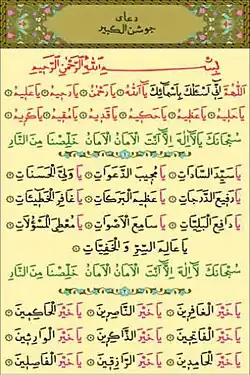 دعای
جوشن الكبير
بِسْمِ اللهِ الرَّحْمٰنِ الرَّحِيمِ
اَللّٰهُمَّ اِنّٰى اَسْئَلُكَ بِاَسْمَائِكَ يَا اَللهُ يَا رَحْمٰنُ يَا رَحِيمُ يَا عَلِيمُ
يَا حَلِيمُ يَا عَظِيمُ يَا حَكِيمُ يَا قَدِيمُ يَا مُقِيمُ يَا كَرِيمُ
سُبْحَانَكَ يَا لَا اِلٰهَ اِلَّا اَنْتَ الْاَمَانُ الْاَمَانُ خَلِّصْنَا مِنَ النَّارِ
يَا سَيِّدَ السَّادَاتِ يَا مُجِيبَ الدَّعَوَاتِ يَا وَلِيَّ الْحَسَنَاتِ
يَا رَفِيعَ الدَّرَجَاتِ يَا عَظِيمَ الْبَرَكَاتِ يَا غَافِرَ الْخَطِيئَاتِ
يَا دَافِعَ الْبَلِيَّاتِ يَا سَامِعَ الْاَصْوَاتِ يَا مُعْطِيَ الْمَسْؤُلَاتِ
يَا عَالِمَ السِّرِّ وَ الْخَفِيَّاتِ
سُبْحَانَكَ يَا لَا اِلٰهَ اِلَّا اَنْتَ الْاَمَانُ الْاَمَانُ خَلِّصْنَا مِنَ النَّارِ
يَا خَيْرَ الْغَافِرِينَ يَا خَيْرَ النَّاصِرِينَ يَا خَيْرَ الْحَاكِمِينَ
يَا خَيْرَ الْفَاتِحِينَ يَا خَيْرَ الذَّاكِرِينَ يَا خَيْرَ الْوَارِثِينَ
يَا خَيْرَ الْحَامِدِينَ يَا خَيْرَ الرَّازِقِينَ يَا خَيْرَ الْفَاصِلِينَ